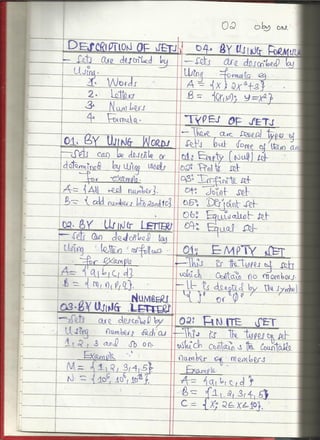 02
DESCRIPTION OF SETS
- Sets are described by
Using.
1. Words
2. Letters
3. Numbers
4. Formula.
01. BY USING WORDS
- Sets can be describe or
determined by using words
For example
A = { All real numbers }.
B = { odd numbers btn 20 and 10 }
02. BY USING LETTERS
- Sets can described by
Using letters as follows
For example
A = { a, b, c, d }
B = { m, n, p, q }.
NUMBERS
03. BY USING LETTERS
- Sets are described by
Using numbers such as
1, 2, 3 and so on
Example
M = { 1, 2, 3, 4, 5 }
04. BY USING FORMULA
- Sets are described by
Using formula eg
B = { (x, y); y = x² }
TYPES OF SETS
- There are several types of
sets but some of them are
01: Empty (Null) set
02: Finite set
03: Infinite set
04: Joint set
05: Disjoint set
06: Equivalent set
07: Equal set
01: EMPTY SET
- This is the types of sets
which contain no members
- It is denoted by the symbol
{ } or Ø
02: FINITE SET
- This is the types of set
which contains the countable
number of members
Example
A = { a, b, c, d }
B = { 1, 2, 3, 4, 5 }